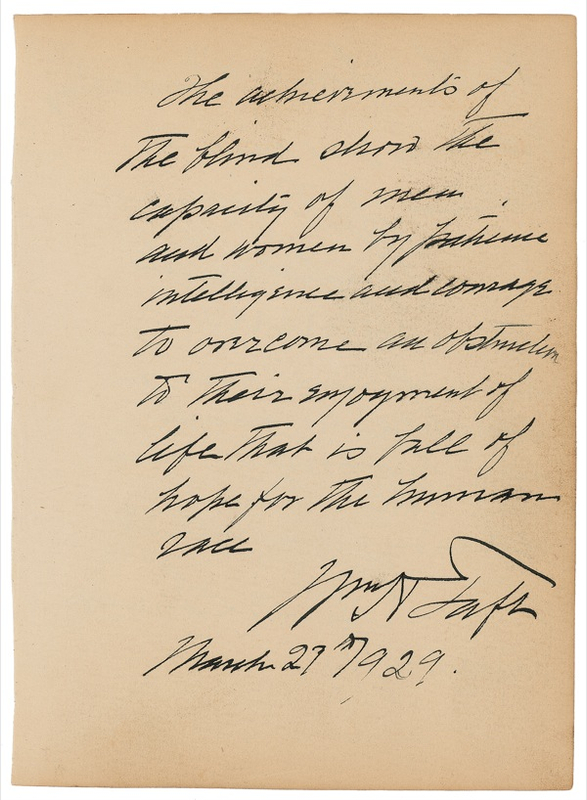 The achievements of
the blind show the
capacity of men
and women by patience
intelligence and courage
to overcome an obstruction
to their enjoyment of
life that is full of
hope for the human
race
Wm H Taft
March 27th 1929.